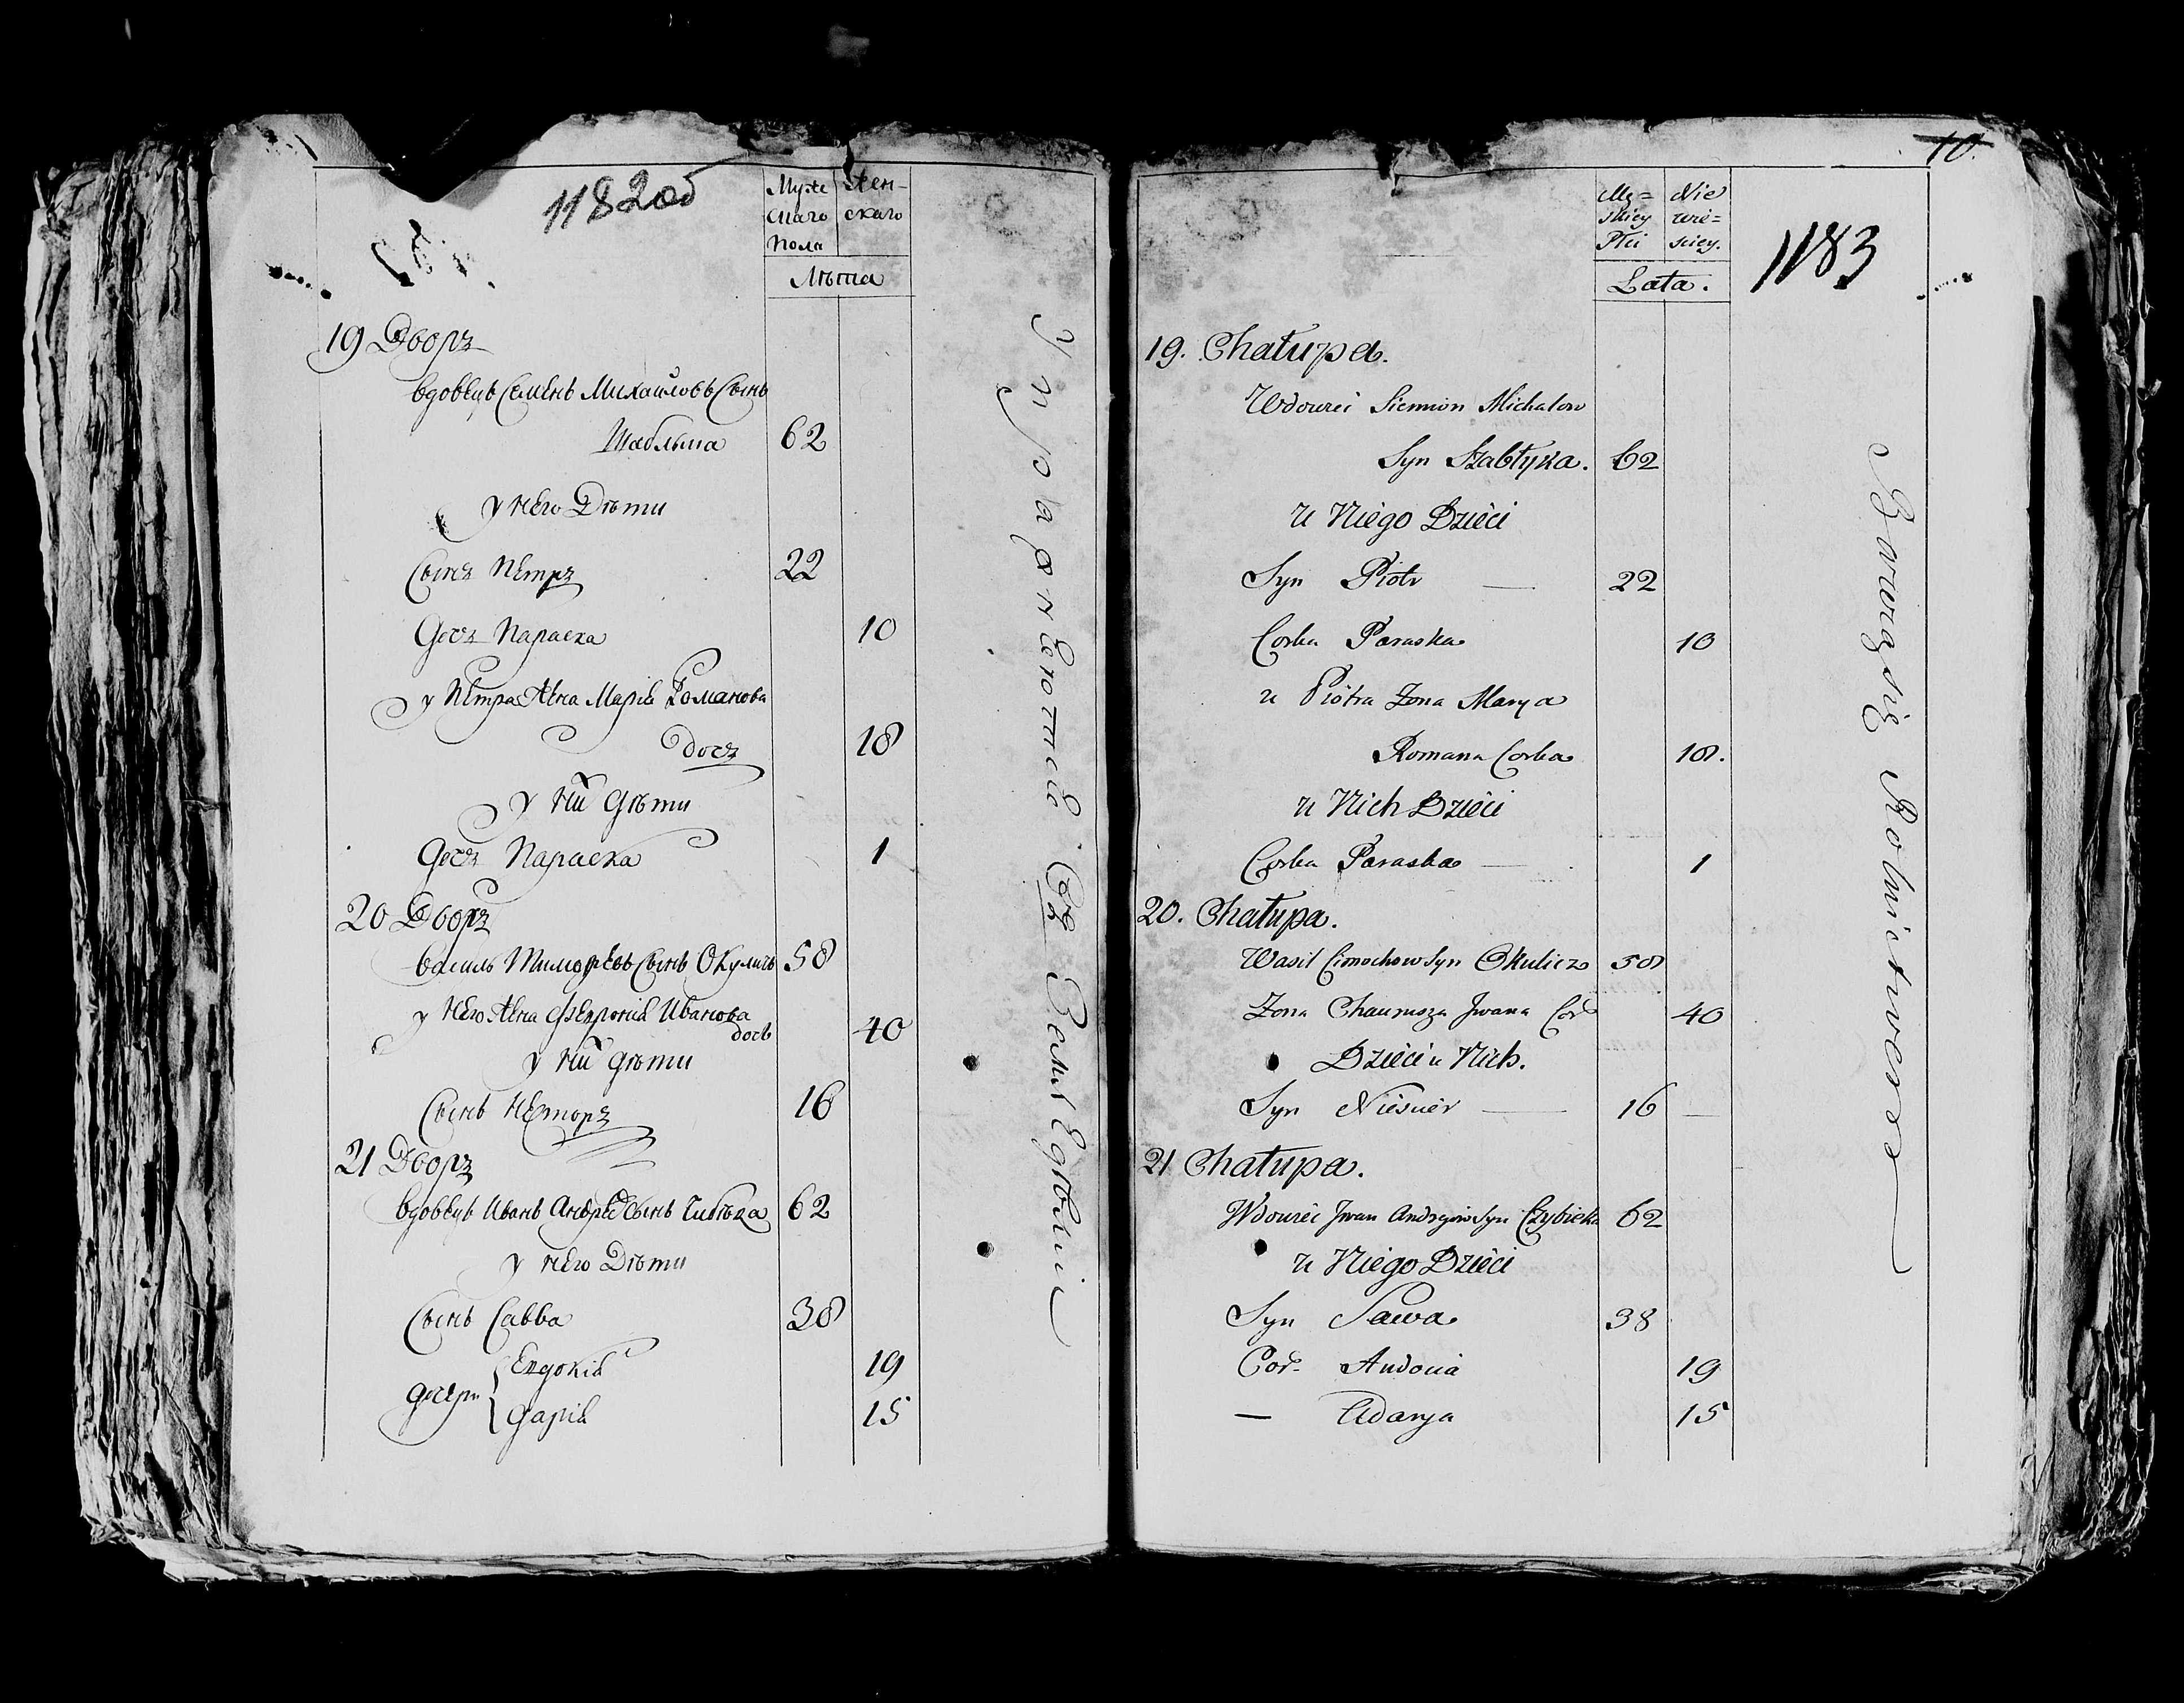 1182об
Муже Жен-
скаго скаго
пола
Лѣта
19 Дворъ
вдовецъ Семенъ Михайловъ Сынъ
Шаблыка 62
у него Дѣти
Сынъ Петръ 22
дочь Параска 10
у Петра жена Марія Романова
дочь 18
у них дѣти
дочь Параска 1
20 Дворъ
василь Тимофѣевъ Сынъ Окуличъ 58
у него жена Февронія Иванова
дочь 40
у них дѣти
Сынъ Несторъ 16
21 Дворъ
вдовецъ Иванъ Андрѣевъ Сынъ Чибѣка 62
у него Дѣти
Сынъ Савва 38
дочери Евдокія 19
Дарія 15
Упражняются Въ Земледѣліи
10.
Mę= Nie
skiey wie=
Płci sciey.
Lata.
1183
19. Chałupa.
Wdowiec Siemion Michałow
Syn Szabłyka. 62
u Niego Dzieci
Syn Piotr — 22
Corka Paraska 10
u Piotra Zona Marya
Romana Corka 18.
u Nich Dzieci
Corka Paraska — 1
20. Chałupa.
Wasil Cimochow Syn Okulicz 58
Zona Chaurusza Jwana Cor 40
Dzieci u Nich.
Syn Niescier — 16 —
21 Chałupa.
Wdowiec Jwan Andrzeiow Syn Czybieka 62
u Niego Dzieci
Syn Sawa 38
Cor- Audocia 19
— Adarya 15
Bawią się Rolnictwem